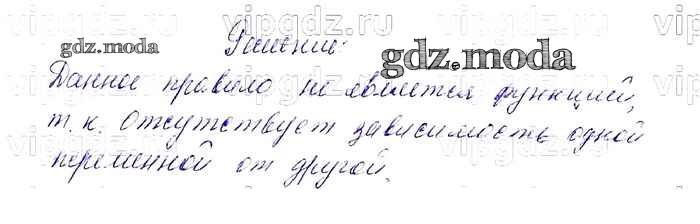 Решение:
gdz.moda
gdz.moda
Данное правило не является функцией,
т.к. отсутствует зависимость одной
переменной от другой.
vipgdz.ru vipgdz.ru vipgdz.ru vipgdz.ru